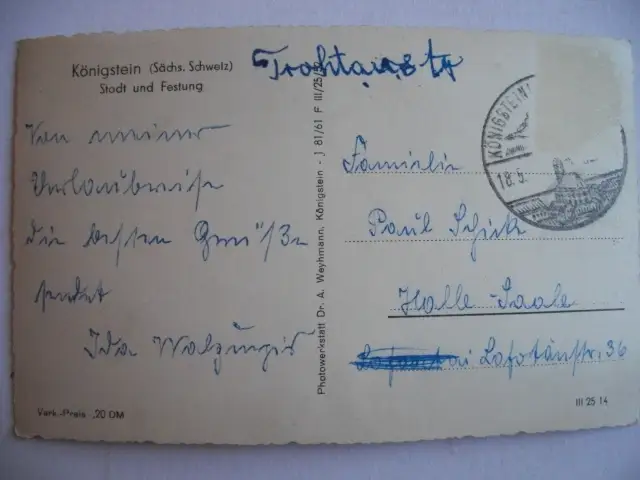 Königstein (Sächs. Schweiz)
Stadt und Festung
Von meiner
Urlaubreise
die besten Grüße
sendet
Ida Walzurgis
Verk.-Preis -,20 DM
Photowerkstatt Dr. A. Weyhmann, Königstein - J 81/61 F III/25/
KÖNIGSTEIN
18.5.
Familie
Paul Schick
Halle-Saale
36
III 25 14